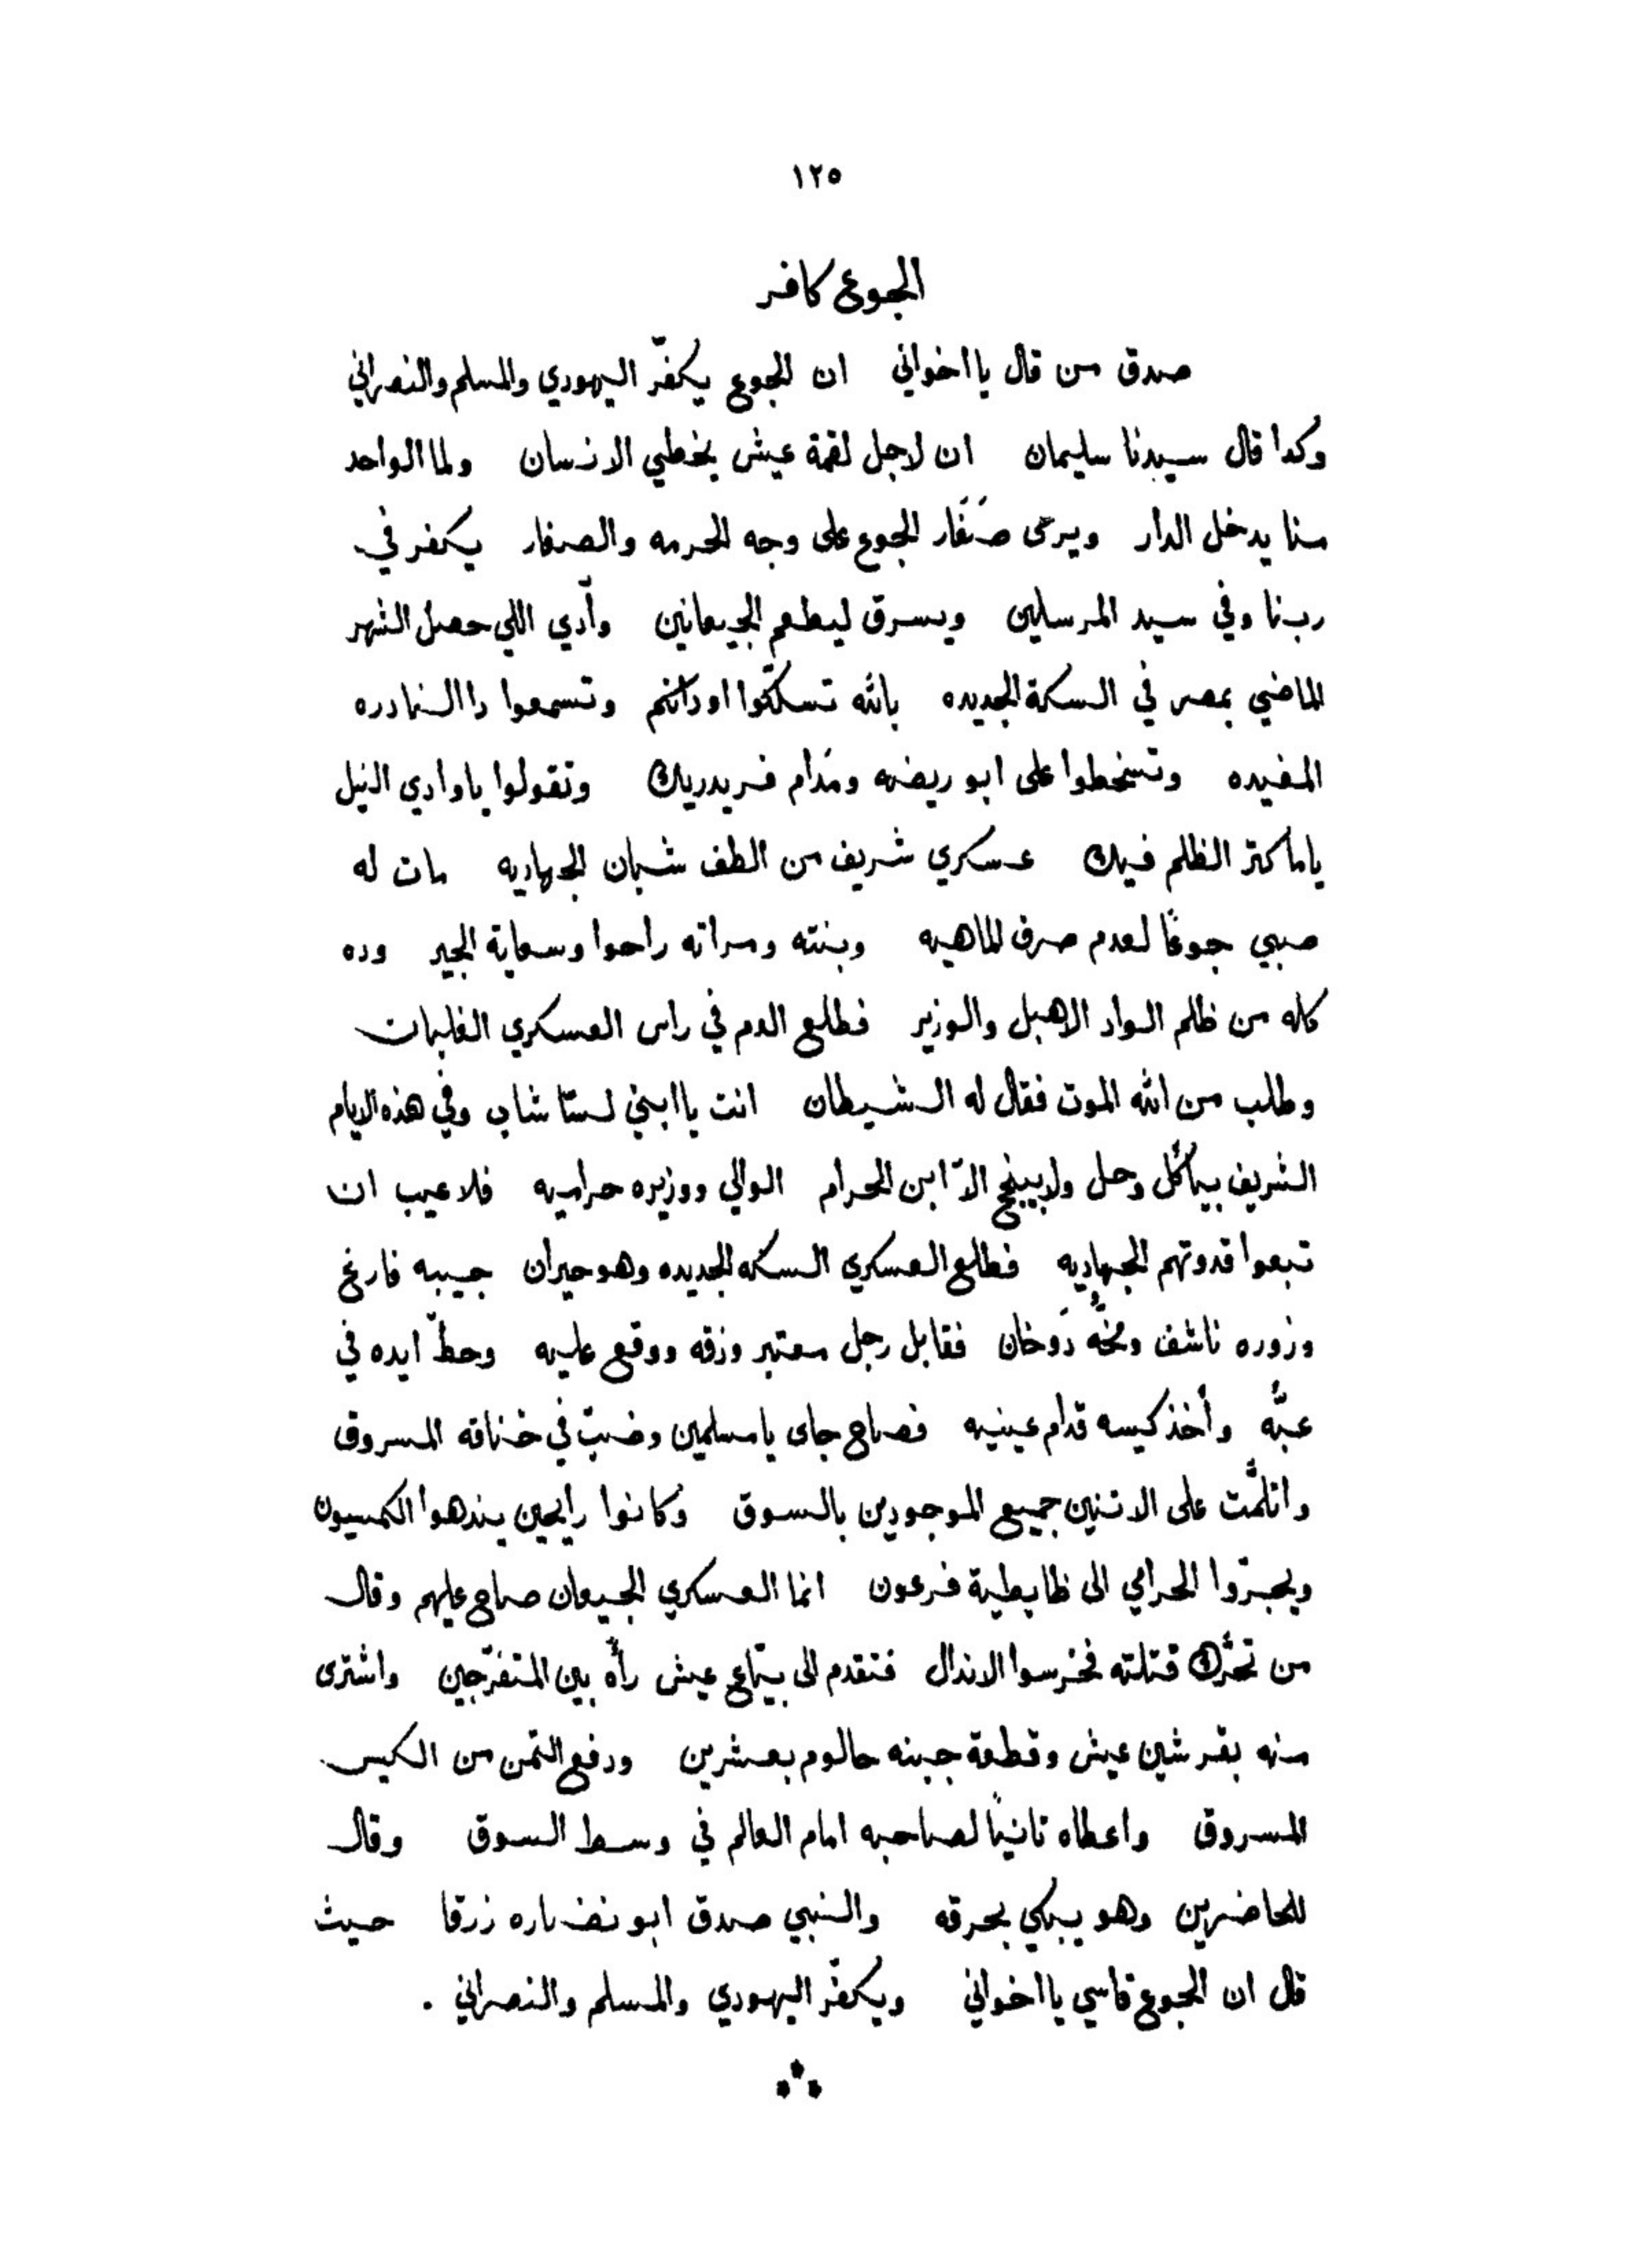 ١٢٥
الجوع كافر
صدق من قال يااخواني ان الجوع يكفّر اليهودي والمسلم والنصراني
وكدا قال سيدنا سليمان ان لاجل لقمة عيش يخطي الانسان ولما الواحد
منا يدخل الدار ويرى صَفَار الجوع على وجه الحرمه والصغار يكفر في
ربنا وفي سيد المرسلين ويسرق ليطعم الجيعانين وآدي اللي حصل الشهر
الماضي بمصر في السكة الجديده بالله تسلّكوا اودانكم وتسمعوا دا النادره
المفيده وتسخطوا على ابو ريضه ومدام فريدريك وتقولوا ياوادي النيل
ياما كتر الظلم فيك عسكري شريف من الطف شبان الجهاديه مات له
صبي جوعًا لعدم صرف الماهيه وبنته ومراته راحوا وسعاية الجير وده
كله من ظلم الواد الاهبل والوزير فطلع الدم في راس العسكري الغلبات
وطلب من الله الموت فقال له الشيطان انت ياابني لسّا شاب وفي هذه الايام
الشريف بيأكل وحل ولا بينجح الاّ ابن الحرام الوالي ووزيره حراميه فلا عيب ان
تبعوا قدوتهم الجهاديه فطلع العسكري السكه الجديده وهو حيران جيبه فارغ
وزوره ناشف ومخُّه دَوخان فقابل رجل معتبر وزقه ووقع عليه وحطّ ايده في
عبّه وأخذ كيسه قدام عينيه فصاح جاى يامسلمين وضبّ في خناقه المسروق
واتلمّت على الاتنين جميع الموجودين بالسوق وكانوا رايحين يندهوا الكمسيون
ويجرّوا الحرامي الى ظابطية فرعون انما العسكري الجيعان صاح عليهم وقال
من تحرّك قتلته فخرسوا الاندال فتقدم الى بيّاع عيش رأه بين المتفرّجين واشترى
منه بقرشين عيش وقطعة جبنه حالوم بعشرين ودفع التمن من الكيس
المسروق واعطاه تانيًا لصاحبه امام العالم في وسط السوق وقال
للحاضرين وهو يبكي بحرقه والنبي صدق ابو نضاره زرقا حيث
قال ان الجوع قاسي يااخواني ويكفّر اليهودي والمسلم والنصراني .